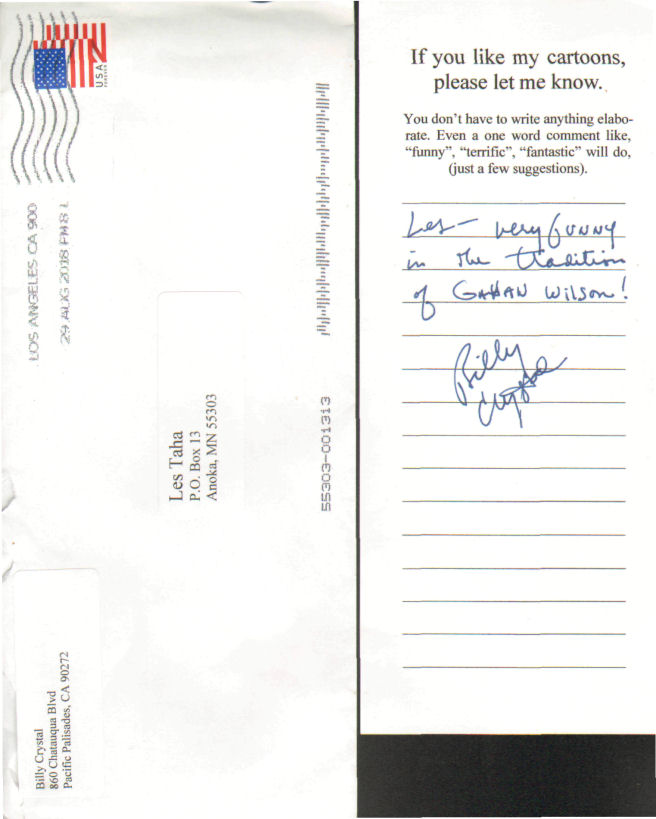 USA
FOREVER
LOS ANGELES CA 900
29 AUG 2018 PM 8 L
Les Taha
P.O. Box 13
Anoka, MN 55303
55303-001313
Billy Crystal
860 Chatauqua Blvd
Pacific Palisades, CA 90272
If you like my cartoons,
please let me know.
You don't have to write anything elabo-
rate. Even a one word comment like,
“funny”, “terrific”, “fantastic” will do,
(just a few suggestions).
Les – very funny
in the tradition
of GAHAN Wilson!
Billy
Crystal